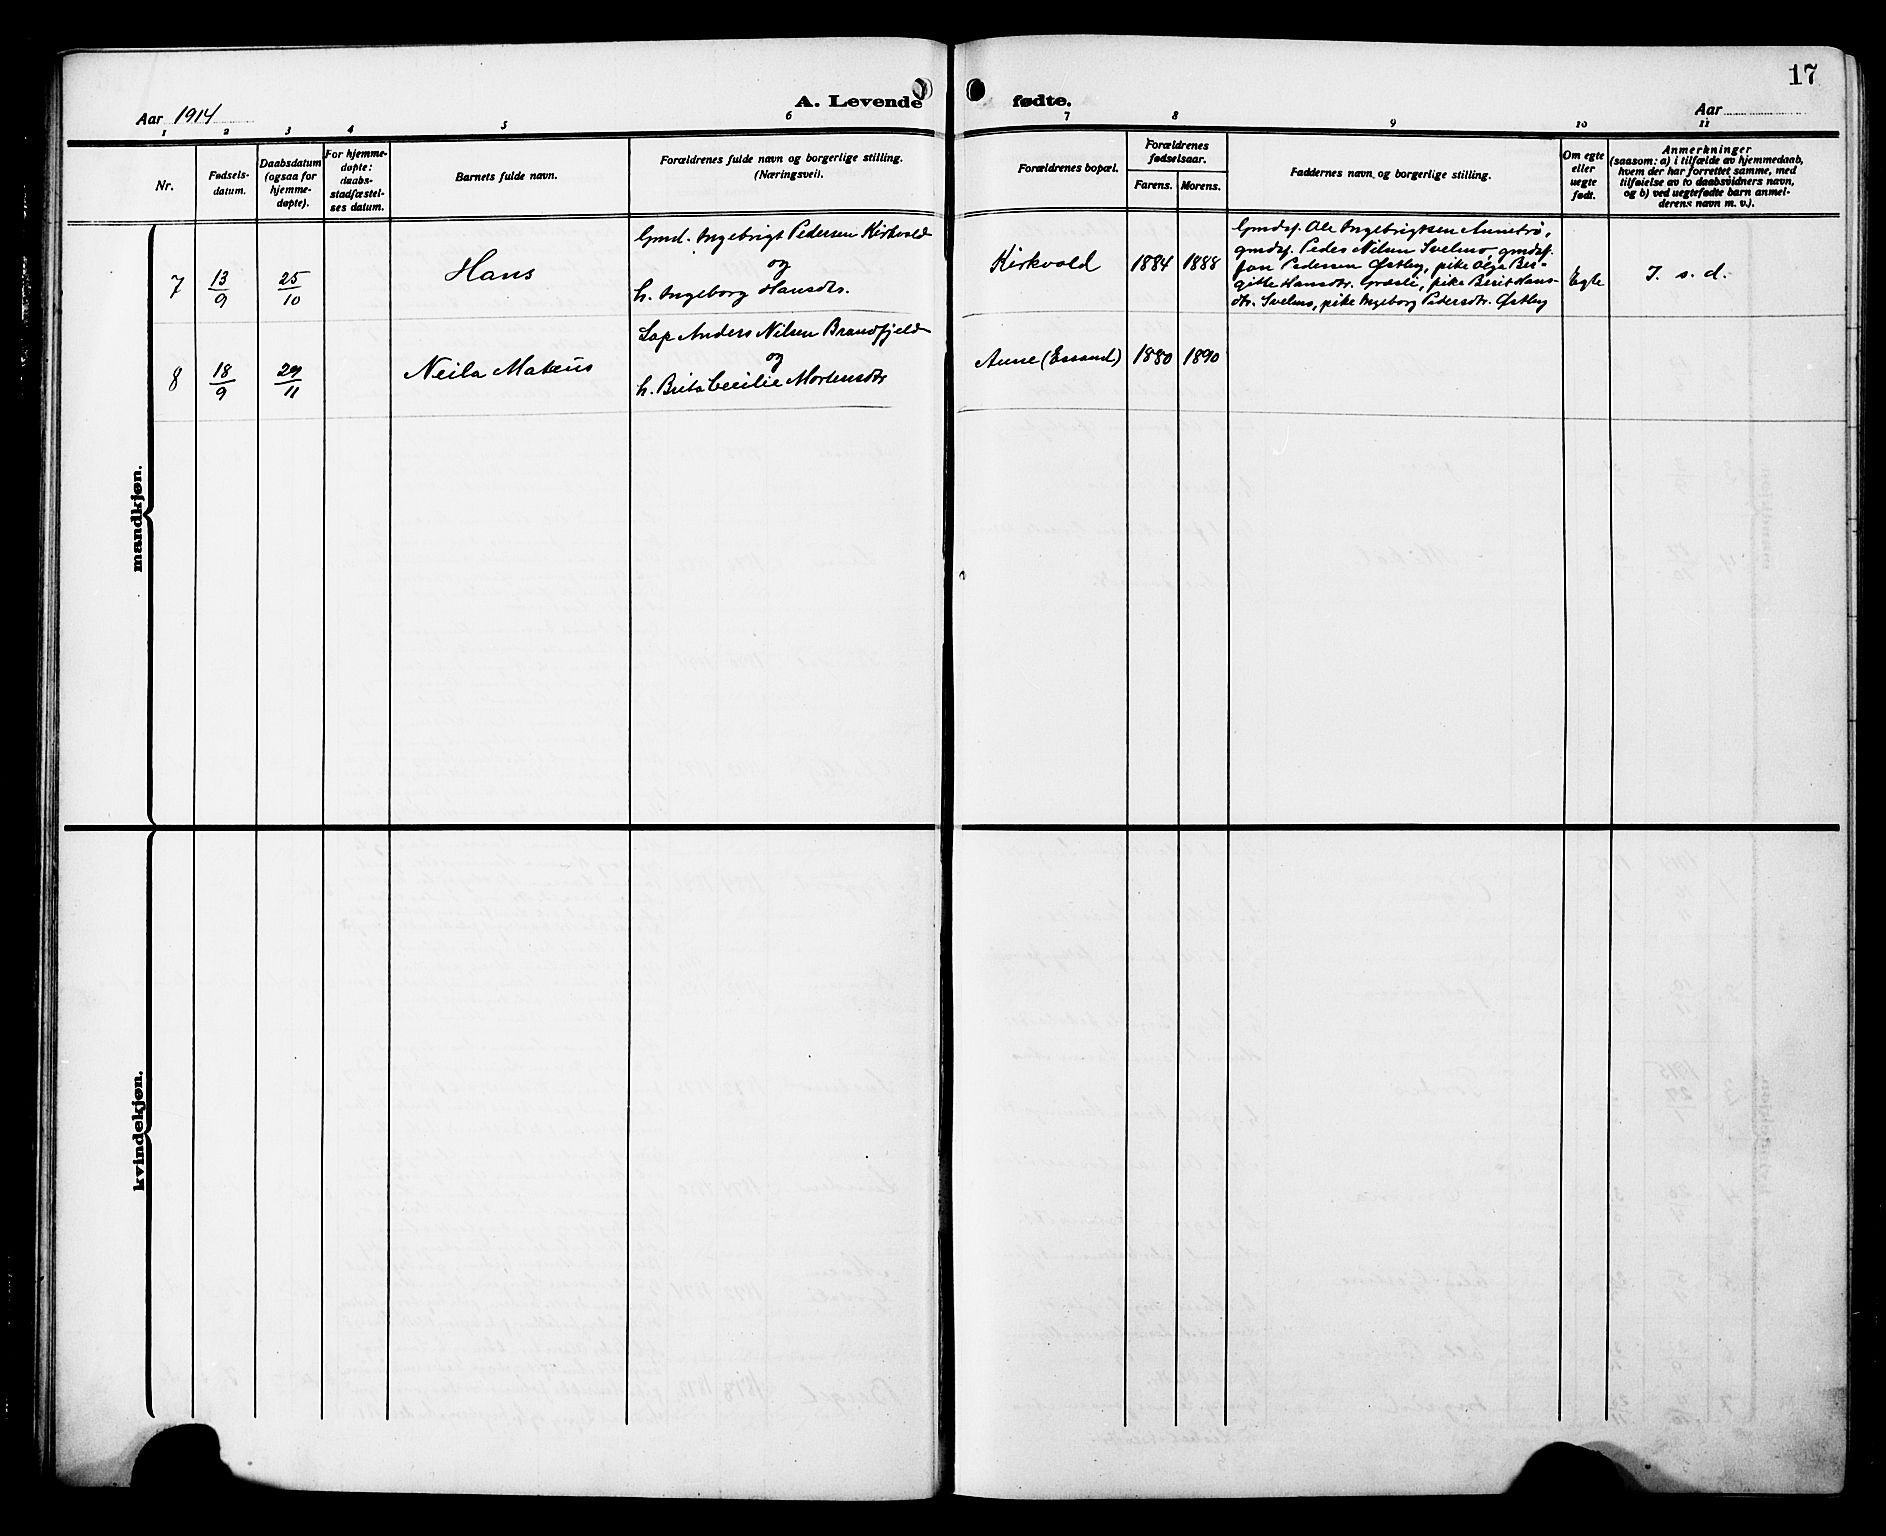 17
Aar 1914
A. Levende
fødte.
Aar
1 2 3 4 5 6
7 8 9 10 11
Nr.
Fødsels-
datum.
Daabsdatum
(ogsaa for
hjemme-
døpte).
For hjemme-
døpte:
daabs-
stadfæstel-
ses datum.
Barnets fulde navn.
Forældrenes fulde navn og borgerlige stilling.
(Næringsvei).
Forældrenes bopæl.
Forældrenes
fødselsaar.
Farens. Morens.
Faddernes navn og borgerlige stilling.
Om egte
eller
uegte
født.
Anmerkninger
(saasom: a) i tilfælde av hjemmedaab,
hvem der har forrettet samme, med
tilføielse av to daabsvidners navn,
og b) ved uegtefødte barn anmel-
derens navn m. v.).
mandkjøn.
7
13
9
25
10
Hans
Gmd. Ingebrigt Pedersen Kirkvold
og
h. Ingeborg Hansdtr.
Kirkvold
1884 1888
Gmdsf. Ole Ingebrigtsen Aunetrø,
gmdsf. Peder Nilsen Svelmo, gmdsf.
Jon Pedersen Østby, pike Olga Bir-
gitte Hansdtr. Græsli, pike Berit Hans-
dtr. Svelmo, pike Ingeborg Pedersdtr. Østby
Egte
I. s. d.
8
18
9
29
11
Neila Mateus
Lap Anders Nilsen Brandfjeld
og
h. Brita Cecilie Mortensdtr
Aune (Essand)
1880 1890
kvindekjøn.